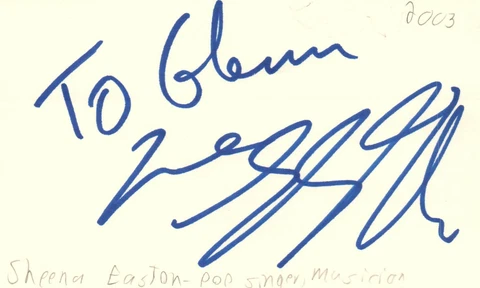 2003
To Glenn
Sheena Easton - pop singer, musician